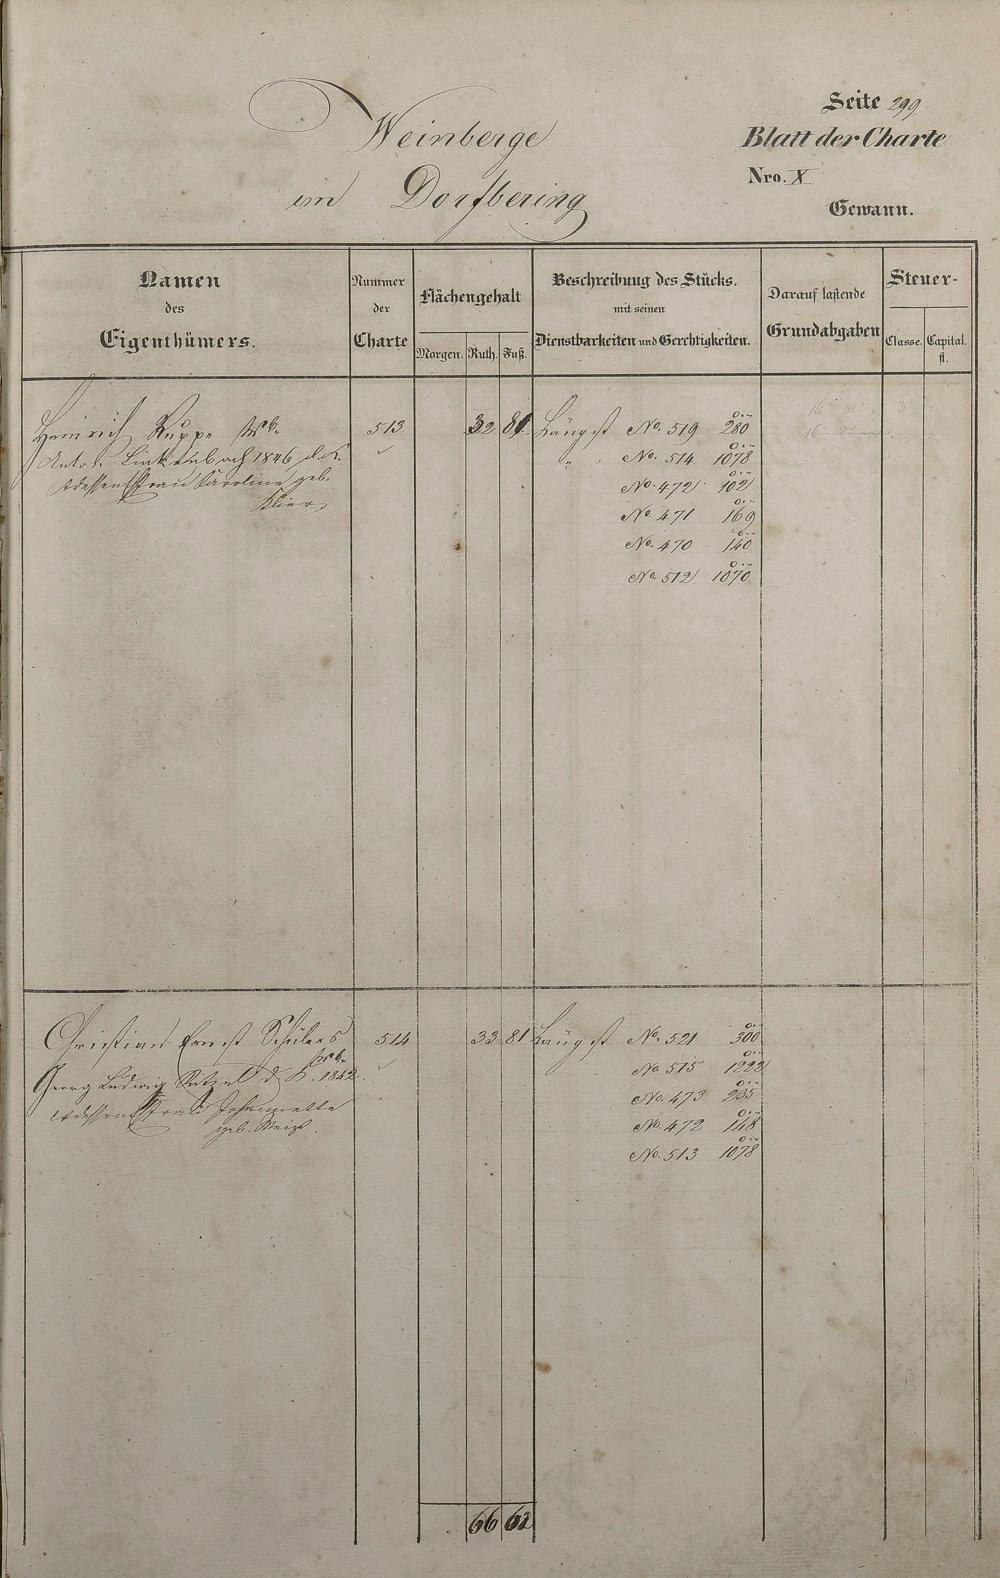 Seite 299
Weinberge
Blatt der Charte
Nro. X
im Dorfbering
Gewann.
Namen
des
Eigenthümers.
Nummer
der
Charte
Flächengehalt
Morgen. Ruth. Fuß.
Beschreibung des Stücks.
mit seinen
Dienstbarkeiten und Gerechtigkeiten.
Darauf lastende
Grundabgaben
Steuer-
Classe. Capital.
fl.
Heinrich Ruppe 513 32 81 Längst No. 519 280
1846 d. K. " No. 514 1078
dessen Frau Caroline geb. No. 472 102
Klier No. 471 169
No. 470 140
No. 512 1070
Christian Ernst Schülers 514 33 81 Längst No. 521 300
Georg Ludwig d. K. 1842. No. 515 1222
dessen Frau Johannette No. 473 235
geb. No. 472 148
No. 513 1078
66 62